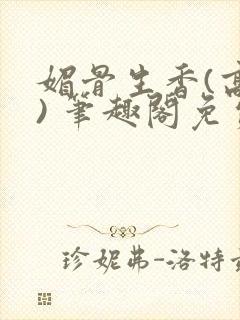 媚骨生香(高
)笔趣阁免
珍妮弗-洛特